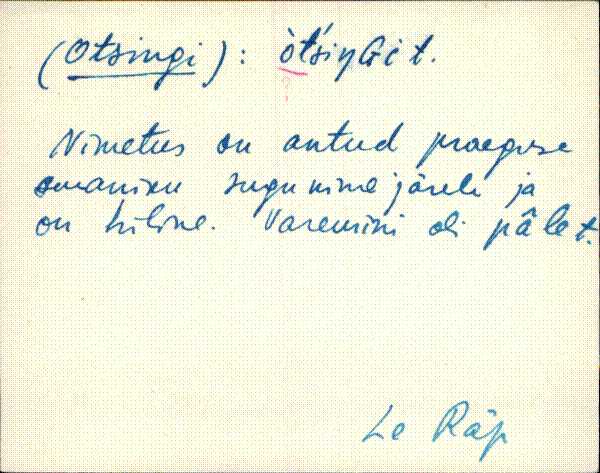 (Otsingi): òt́siŋGit.
Nimetus on antud praeguse
omaniku sugunime järele ja
on hiline. Varemini oli pâlet.
Le Räp